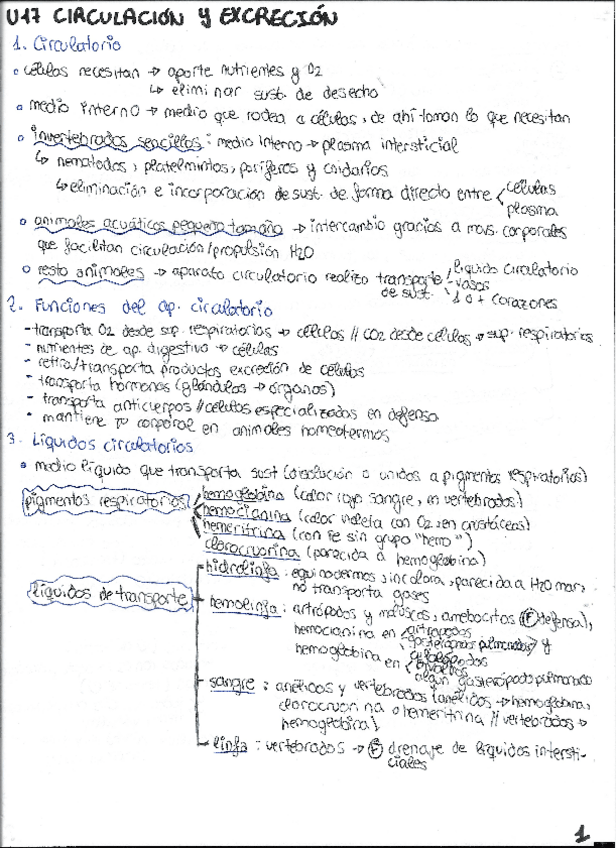 U17 CIRCULACIÓN Y EXCRECIÓN
1. Circulatorio
células necesitan → aporte nutrientes y O2
↳ eliminar sust. de desecho
medio interno → medio que rodea a células, de ahí toman lo que necesitan
invertebrados sencillos: medio interno → plasma intersticial
↳ nematodos, platelmintos, poríferos y cnidarios
↳ eliminación e incorporación de sust. de forma directo entre células
plasma
animales acuáticos pequeño tamaño → intercambio gracias a movs. corporales
que facilitan circulación/propulsión H2O
resto animales → aparato circulatorio realiza transporte de sust.
líquido circulatorio
vasos
1 o + corazones
2. Funciones del ap. circulatorio
- transporta O2 desde sup. respiratorios → células // CO2 desde células → sup. respiratorios
- nutrientes de ap. digestivo → células
- retira/transporta productos excreción de células
- transporta hormonas (glándulas → órganos)
- transporta anticuerpos // células especializados en defensa
- mantiene Tª corporal en animales homeotermos
3. Líquidos circulatorios
medio líquido que transporta sust (disolución o unidos a pigmentos respiratorios)
pigmentos respiratorios
hemoglobina (color rojo sangre, en vertebrados)
hemocianina (color violeta con O2, en crustáceos)
hemeritrina (con Fe sin grupo "hemo")
clorocruorina (parecida a hemoglobina)
líquidos de transporte
hidrolinfa: equinodermos, incolora, parecida a H2O mar,
no transporta gases
hemolinfa: artrópodos y moluscos, amebocitos (F defensa),
hemocianina en artrópodos
gasterópodos pulmonados y
cefalópodos
hemoglobina en bivalvos
algún gasterópodo pulmonado
sangre: anélidos y vertebrados (anélidos → hemoglobina,
clorocruorina o hemeritrina // vertebrados →
hemoglobina)
linfa: vertebrados → F drenaje de líquidos intersti-
ciales
1